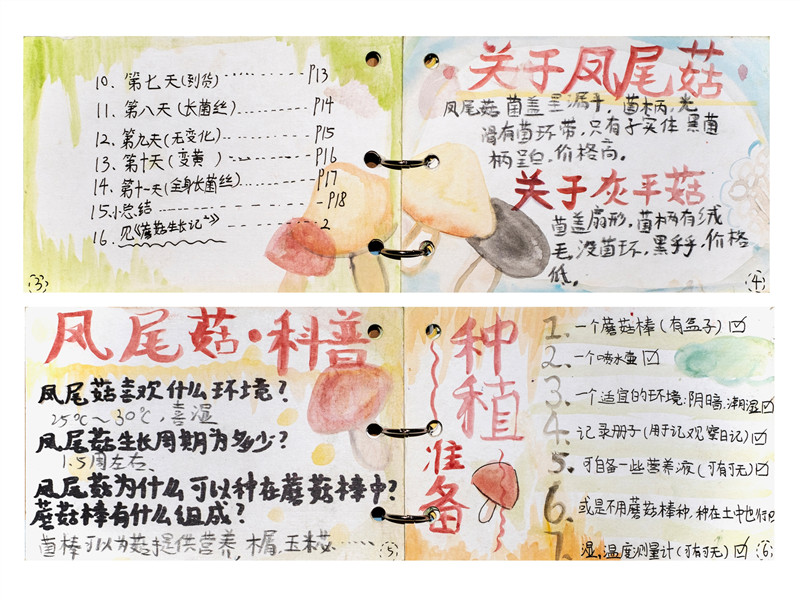 10、第七天(到货)--------P13
11、第八天(长菌丝)--------P14
12、第九天(无变化)--------P15
13、第十天(变黄 )--------P16
14、第十一天(全身长菌丝)------P17
15.小总结--------P18
16、见《蘑菇生长记²》------2
3
关于凤尾菇
凤尾菇菌盖呈漏斗,菌柄,光
滑有菌环带,只有子实体 黑菌
柄呈白,价格高。
关于灰平菇
菌盖扇形,菌柄有绒
毛,没菌环,黑乎乎,价格
低。
4
凤尾菇·科普
凤尾菇喜欢什么环境?
25℃~30℃,喜湿
凤尾菇生长周期为多少?
1.5周左右、
凤尾菇为什么可以种在蘑菇棒中?
蘑菇棒有什么组成?
菌棒可以为菇提供营养,木屑、玉米芯……
5
种植
准备
1、一个蘑菇棒(有盒子)☑
2、一个喷水壶☑
3、一个适宜的环境:阴暗、潮湿☑
4、记录册子(用于记观察日记)☑
5、可自备一些营养液(可有可无)☑
6、或是不用蘑菇棒种,种在土中也
7、湿,温度测量计(可有可无)☑
6